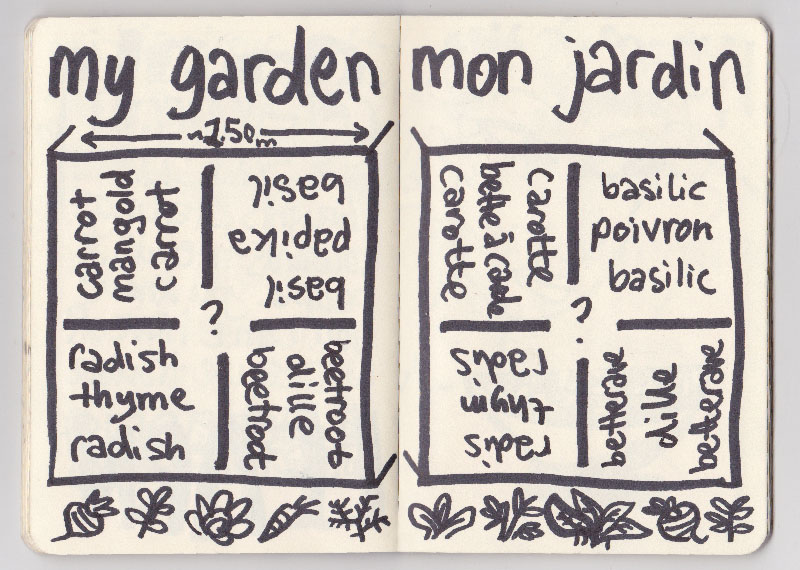 my garden
~1.50m
carrot
mangold
carrot
basil
paprika
basil
?
radish
thyme
radish
beetroot
dille
beetroot
mon jardin
carotte
bette à carde
carotte
basilic
poivron
basilic
?
radis
thym
radis
betterave
dille
betterave